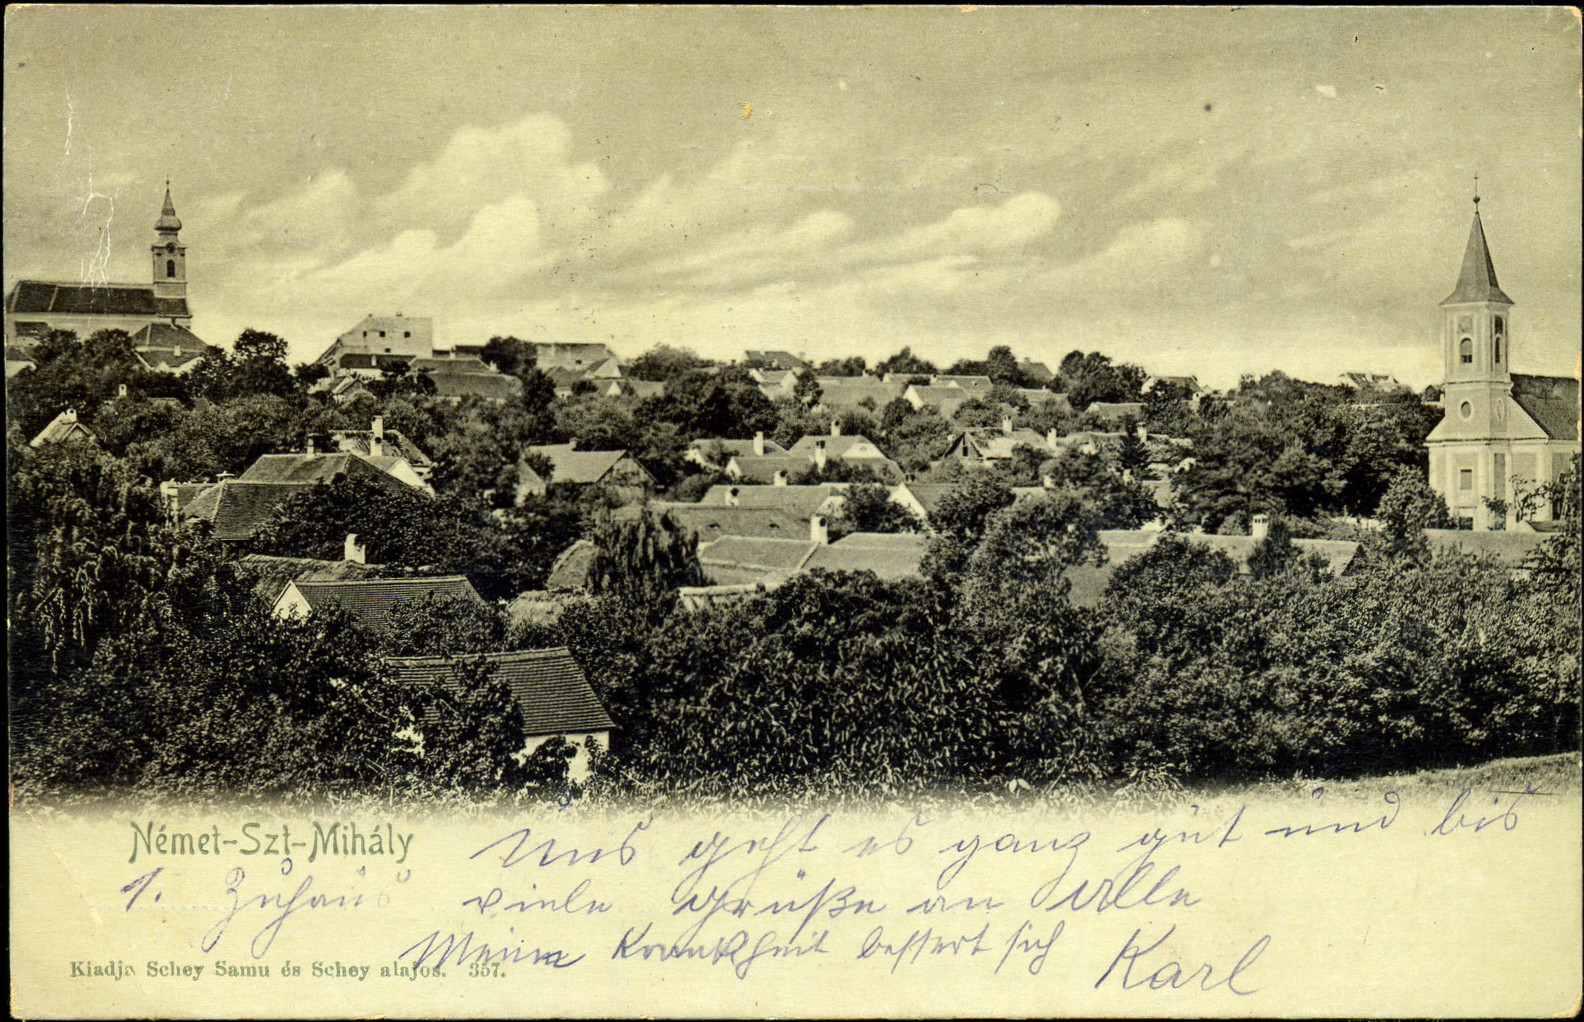 Német-Szt-Mihály
Uns geht es ganz gut und bis
1. Zuhaus viele Grüße an Alle
Meine Krankheit bessert sich Karl
Kiadja Schey Samu és Schey alajos. 357.